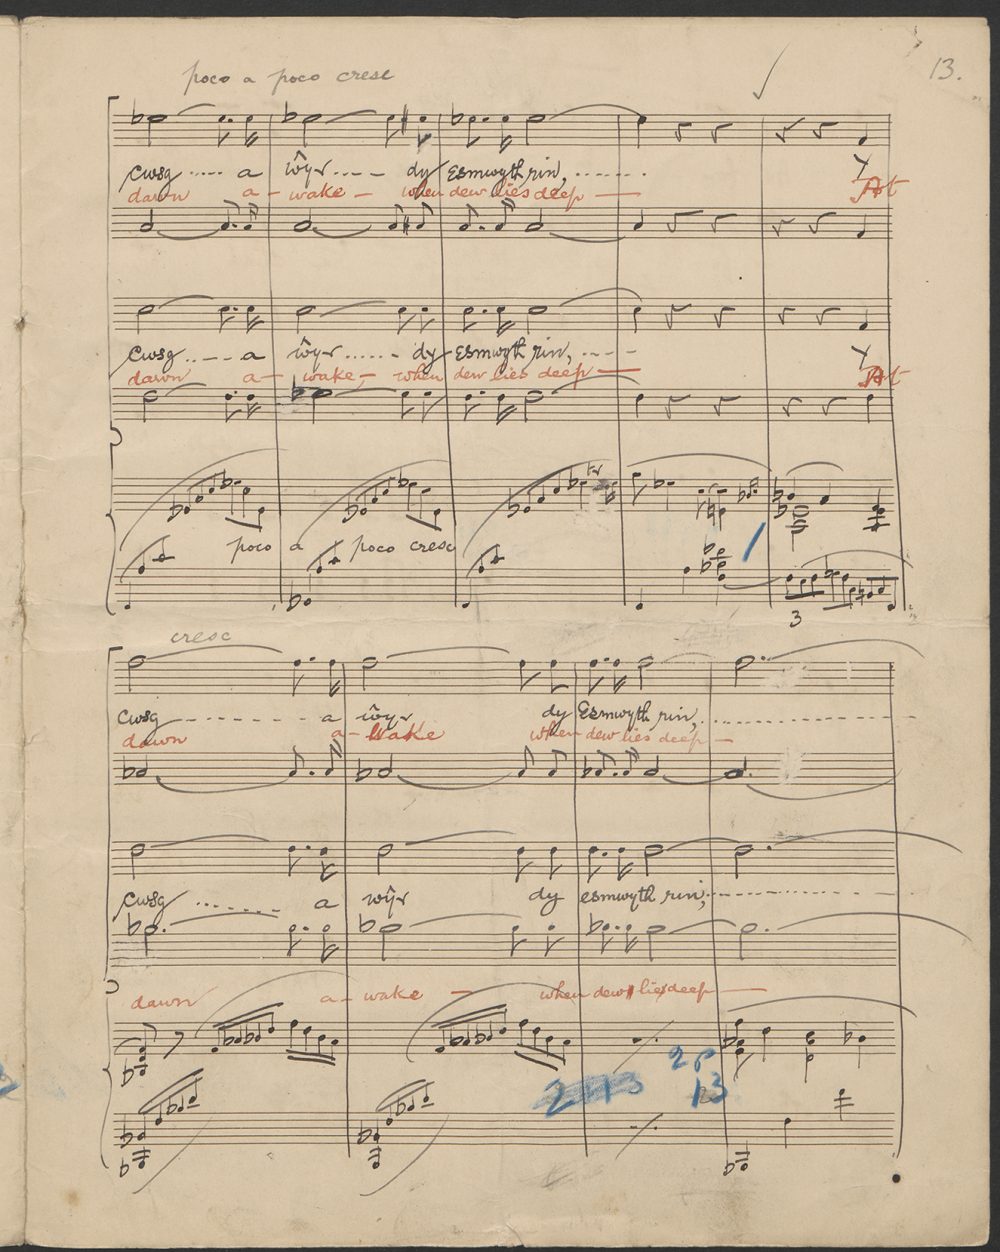 13.
poco a poco cresc
cwsg ..... a ŵyr .... dy Esmwyth rin, .......
dawn a - wake - when dew lies deep — At
Cwsg ..... a ŵyr ...... dy Esmwyth rin, ....
dawn a - wake, - when dew lies deep — At
poco a poco cresc
3
cresc
cwsg - - - - - - - - a ŵyr dy Esmwyth rin, ..................
dawn a - Wake when dew lies deep —
cwsg ......... a ŵyr dy esmwyth rin, ..................
dawn a - wake — when dew lies deep —
2 p
13